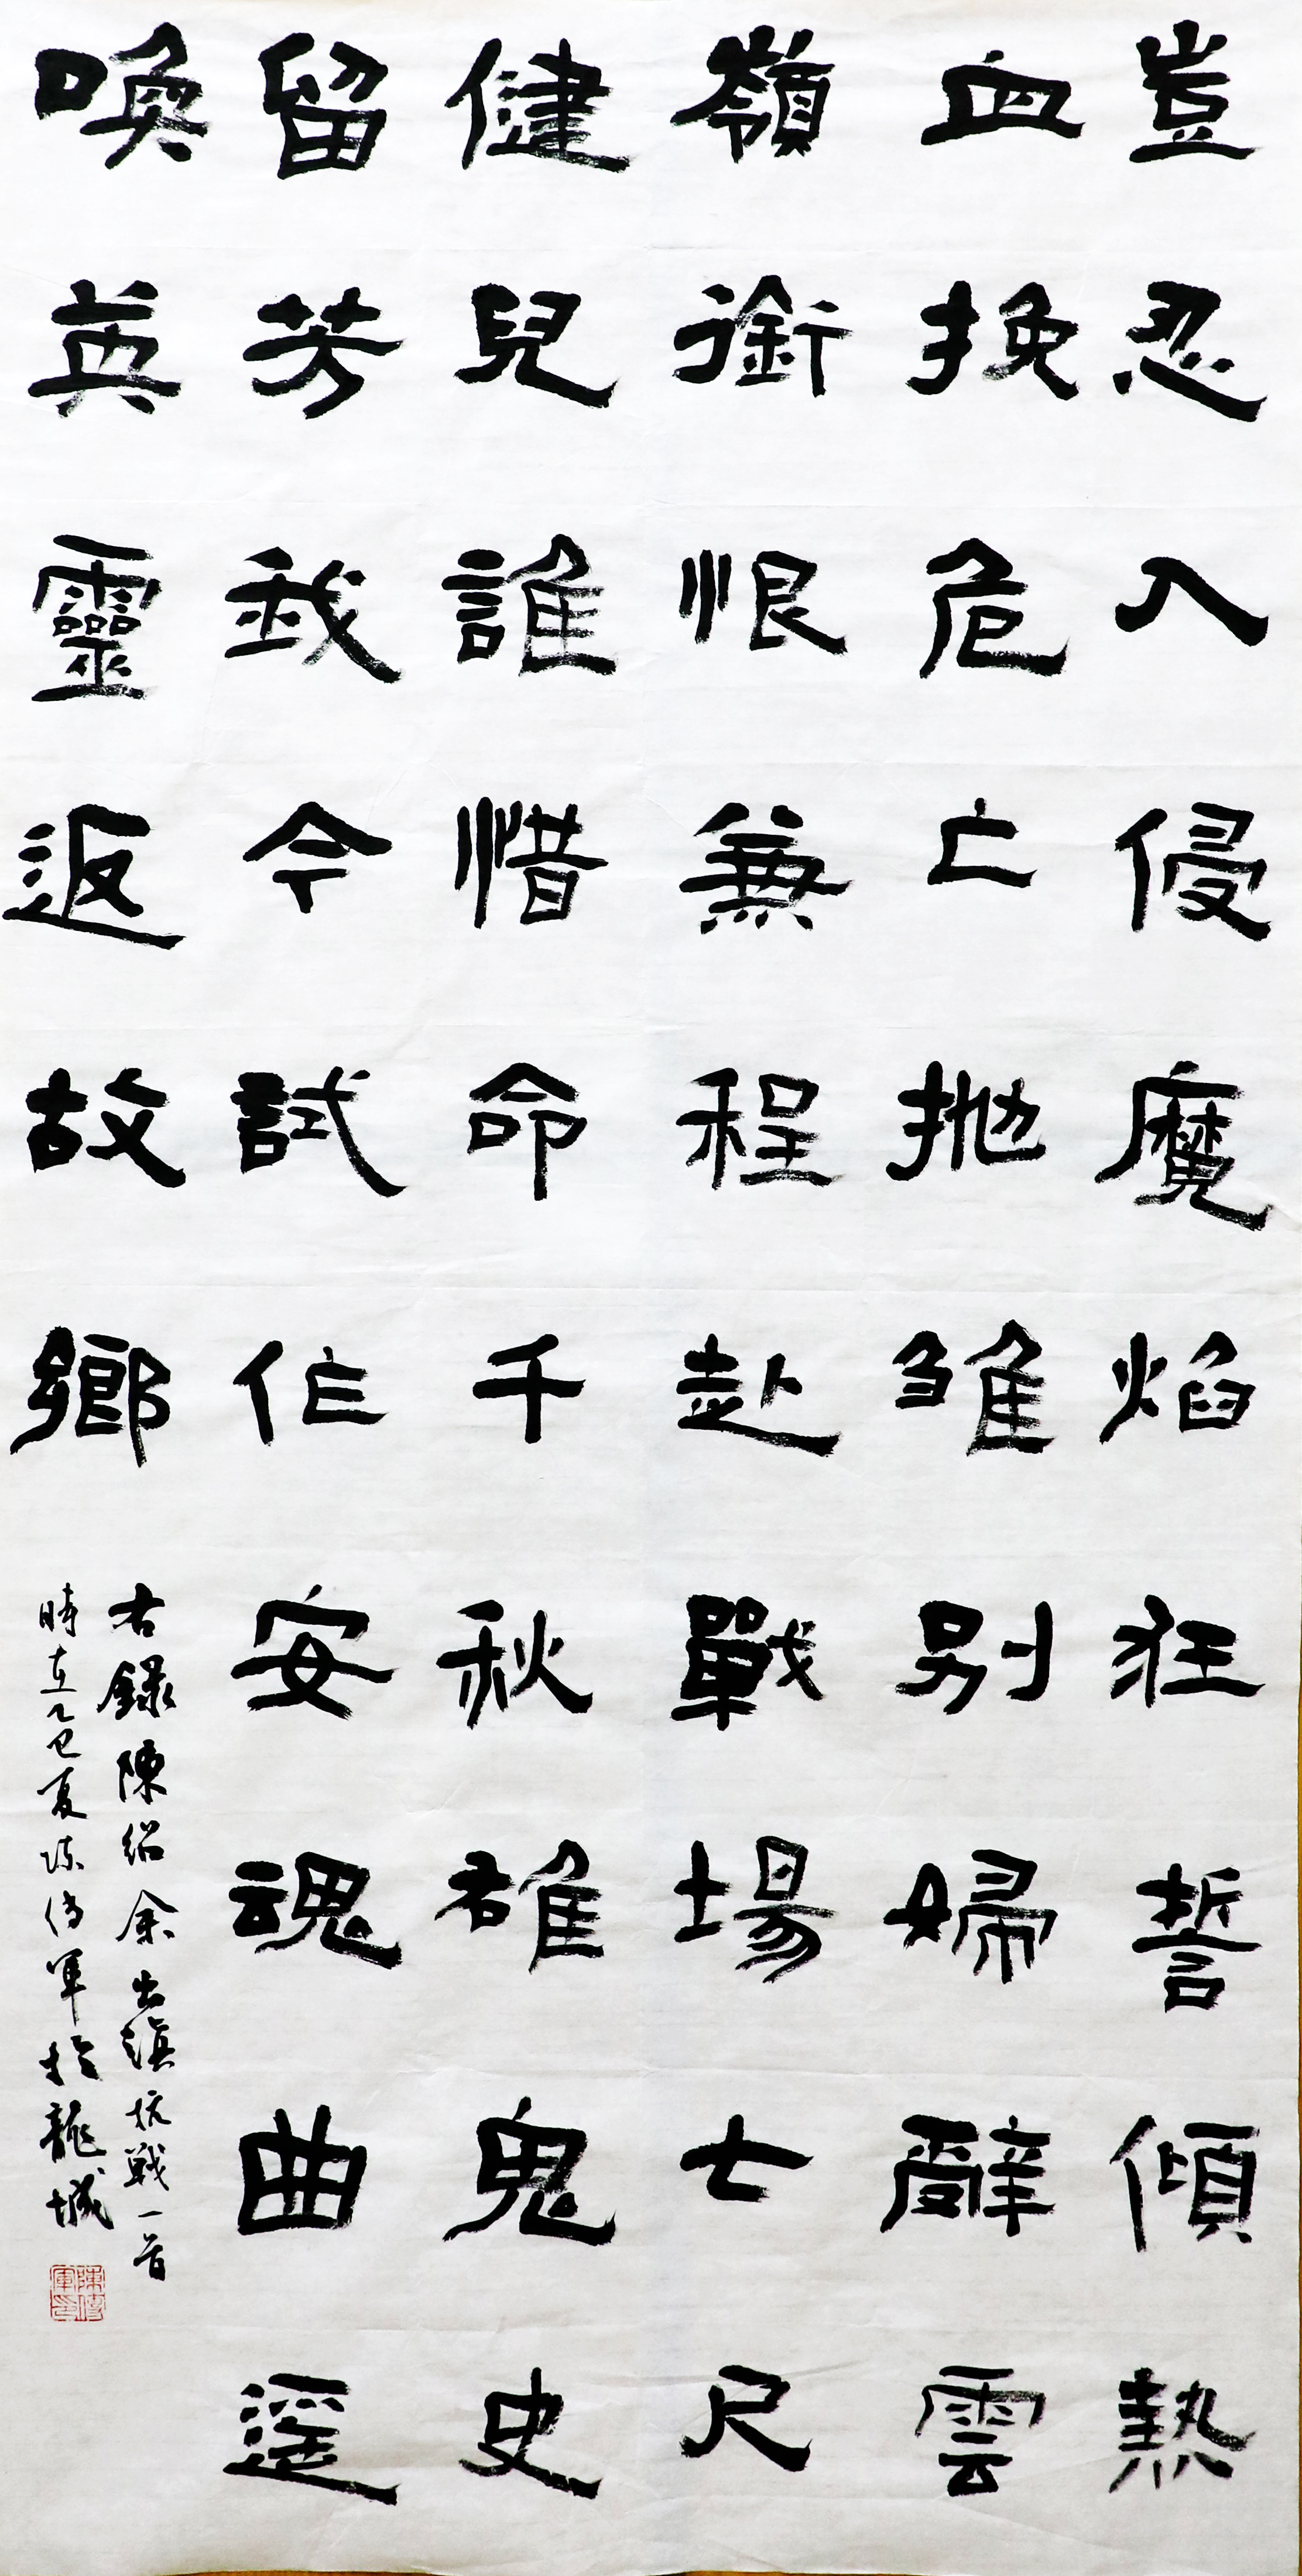 豈忍入侵魔焰狂誓傾熱
血挽危亡拋雏別婦辭雲
嶺銜恨兼程赴戰場七尺
健兒誰惜命千秋雄鬼史
留芳我今試作安魂曲遥
喚英靈返故鄉
右録陳紹余出滇抗戰一首
時在乙巳夏陳傳軍於龍城
陳傳軍印